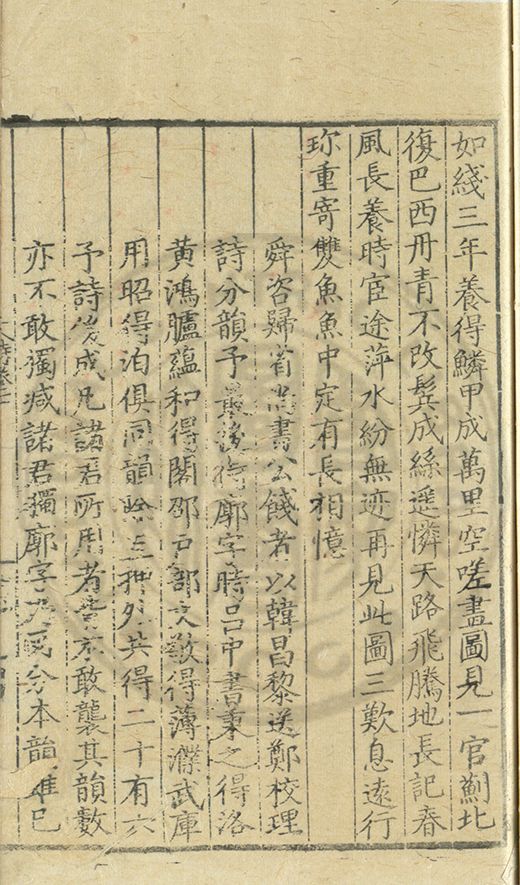 如綫三年養得鱗甲成萬里空嗟畫圖見一官薊北
復巴西丹青不改鬂成絲遥憐天路飛騰地長記春
風長養時宦途萍水紛無迹再見此圖三歎息逺行
珎重寄雙魚魚中定有長相憶
舜咨歸省尚書公餞者以韓昌黎送鄭校理
詩分韻予最後得廓字時吕中書秉之得洛
黄鴻臚蘊和得閣邵户部文敬得薄濮武庫
用昭得泊俱同韻除三押外共得二十有六
予詩後成凡諸君所用者皆不敢襲其韻數
亦不敢獨减諸君獨廓字分本韻雖已